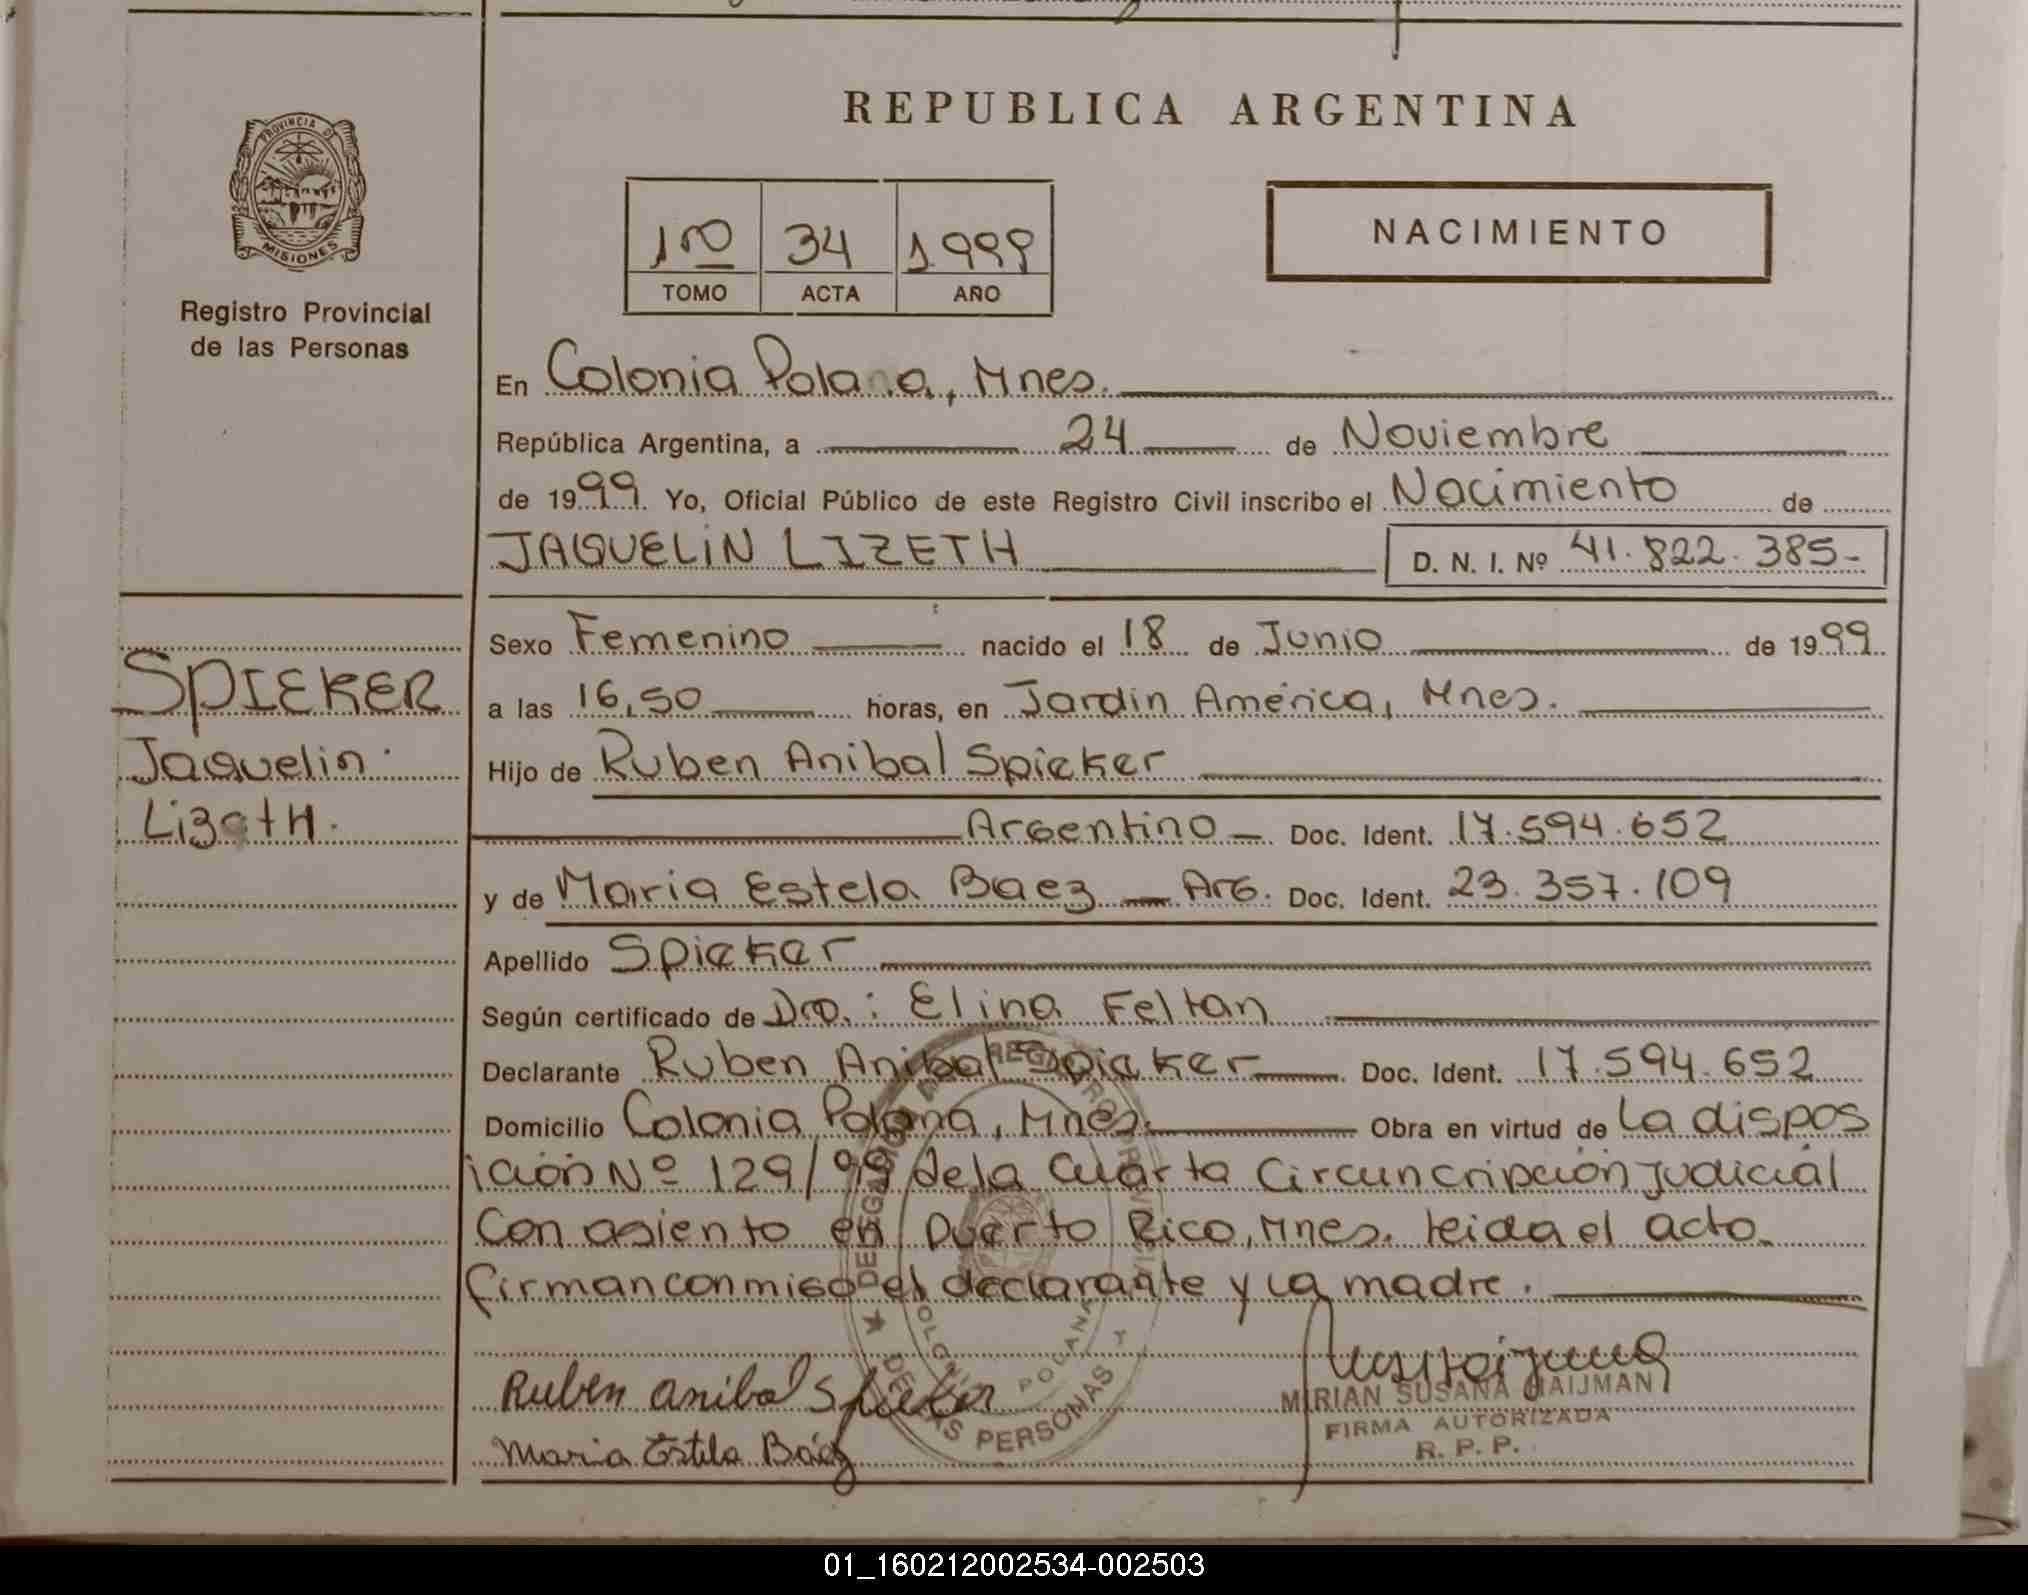 REPUBLICA ARGENTINA
PROVINCIA D
MISIONES
Registro Provincial
de las Personas
1ro 34 1.999
TOMO ACTA AÑO
NACIMIENTO
En Colonia Polana, Mnes.
República Argentina, a 24 de Noviembre
de 1999. Yo, Oficial Público de este Registro Civil inscribo el Nacimiento de
JAQUELIN LIZETH D. N. I. Nº 41.822.385-
SPIEKER
Jaquelin
Lizeth.
Sexo Femenino nacido el 18 de Junio de 1999
a las 16,50 horas, en Jardin América, Mnes.
Hijo de Ruben Anibal Spieker
Argentino Doc. Ident. 17.594.652
y de Maria Estela Baez Arg. Doc. Ident. 23.357.109
Apellido Spieker
Según certificado de Dra.: Elina Feltan
Declarante Ruben Anibal Spieker Doc. Ident. 17.594.652
Domicilio Colonia Polana, Mnes. Obra en virtud de la dispos
ición Nº 129/99 de la Cuarta Circuncripción Judicial
Con asiento en Puerto Rico, Mnes. leida el acto
firman conmigo el declarante y la madre.
Ruben anibal Spieker
Maria Estela Báez
MIRIAN SUSANA HAIJMAN
FIRMA AUTORIZADA
R. P. P.
DE LAS PERSONAS
POLANA
01_160212002534-002503